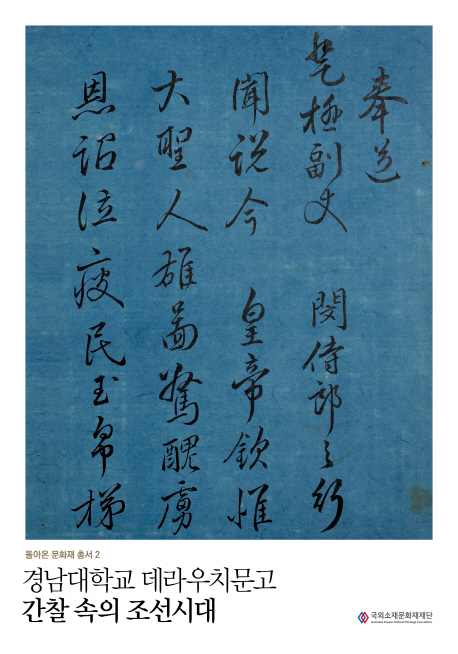 奉送
登極副使 閔侍郎之行
聞説今 皇帝欽惟
大聖人雄啚驚醜虜
恩詔泣疲民玉帛梯
돌아온 문화재 총서 2
경남대학교 데라우치문고
간찰 속의 조선시대
국외소재문화재재단